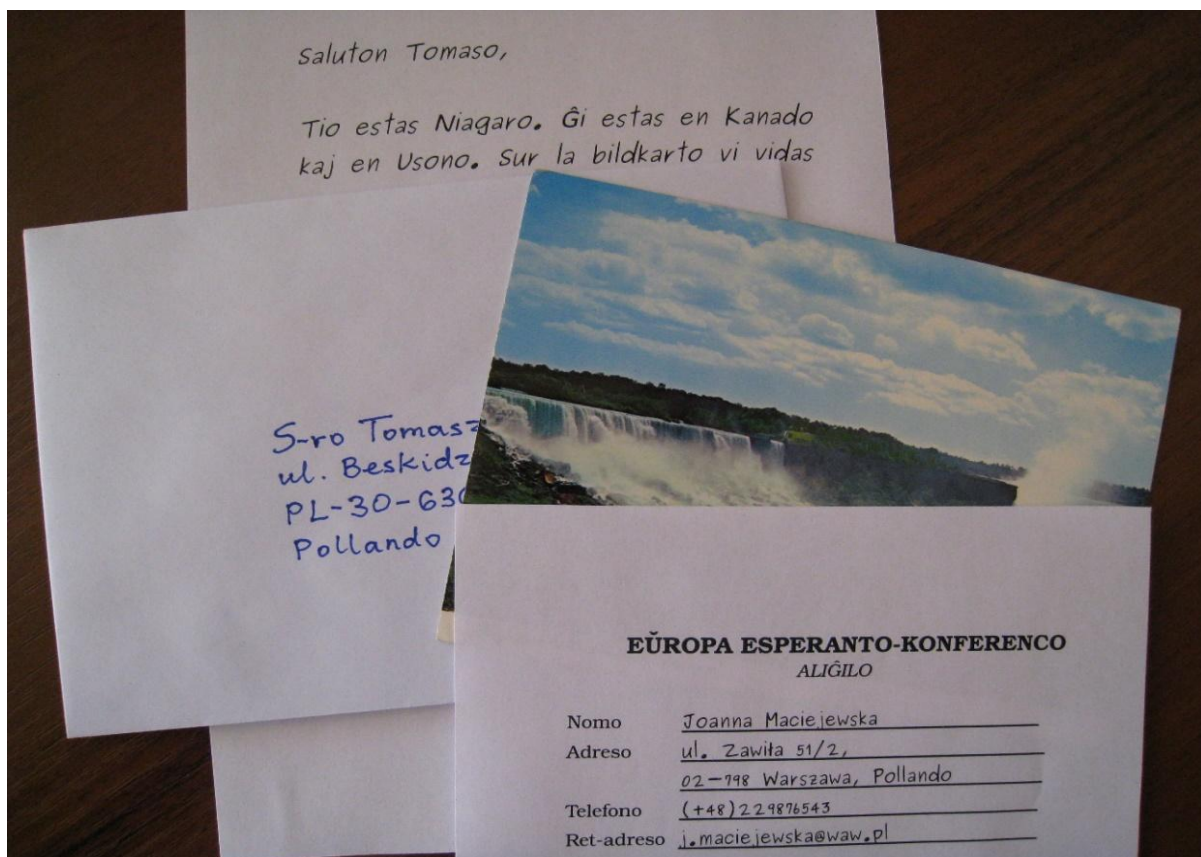 Saluton Tomaso,
Tio estas Niagaro. Ĝi estas en Kanado
kaj en Usono. Sur la bildkarto vi vidas
S-ro Tomasz
ul. Beskidz
PL-30-630
Pollando
EŬROPA ESPERANTO-KONFERENCO
ALIĜILO
Nomo Joanna Maciejewska
Adreso ul. Zawiła 51/2,
02-798 Warszawa, Pollando
Telefono (+48)229876543
Ret-adreso j.maciejewska@waw.pl